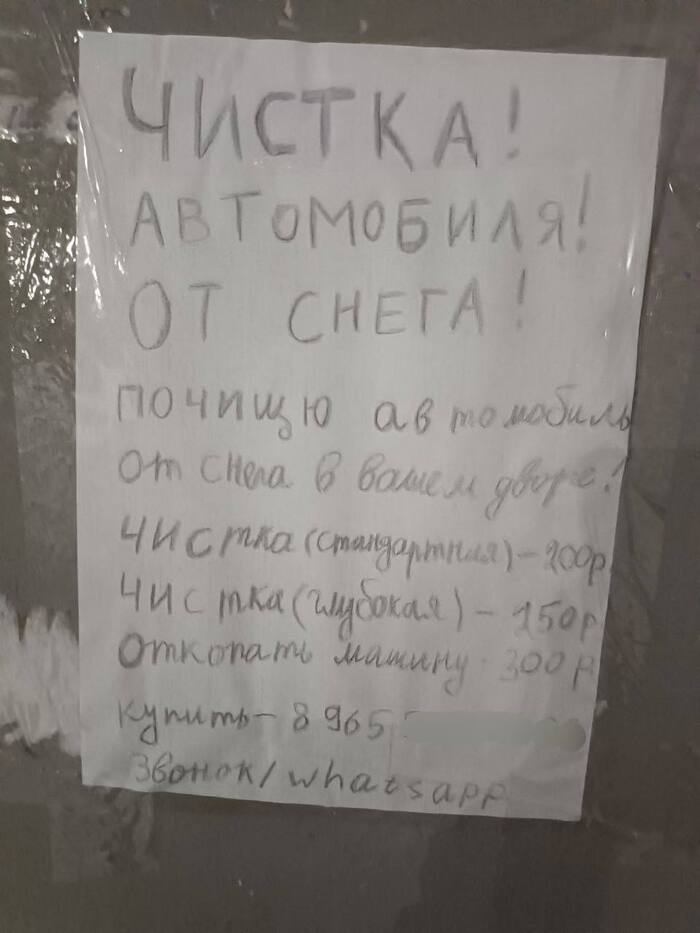 ЧИСТКА!
АВТОМОБИЛЯ!
ОТ СНЕГА!
ПОЧИЩЮ автомобиль
от снега в вашем дворе!
Чистка (стандартная) - 200р
Чистка (глубокая) - 250р
Откопать машину - 300р
купить - 8 965
Звонок/whatsapp